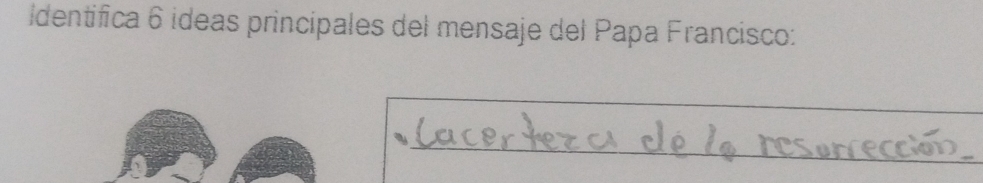 Identifica 6 ideas principales del mensaje del Papa Francisco:
. La certeza de la resurrección.